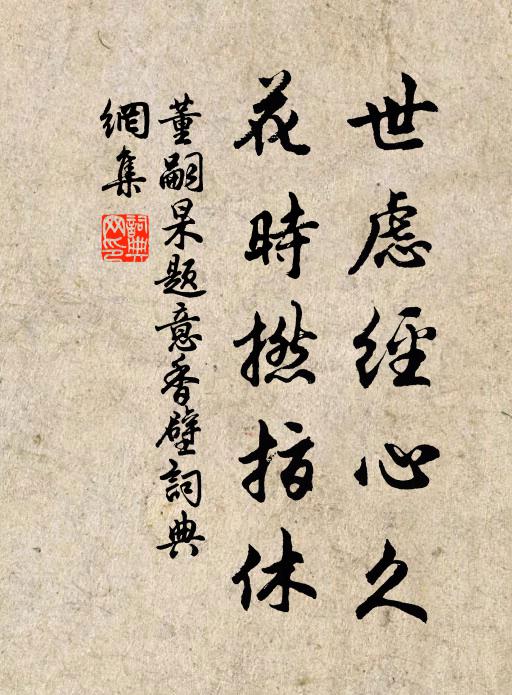 世慮經心久
花時撚指休
董嗣杲題意香壁詞典
網集
詞典
网印